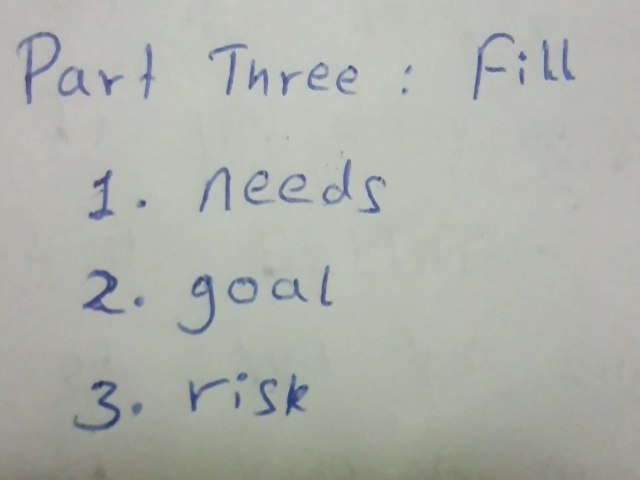 Part Three : Fill
1. needs
2. goal
3. risk